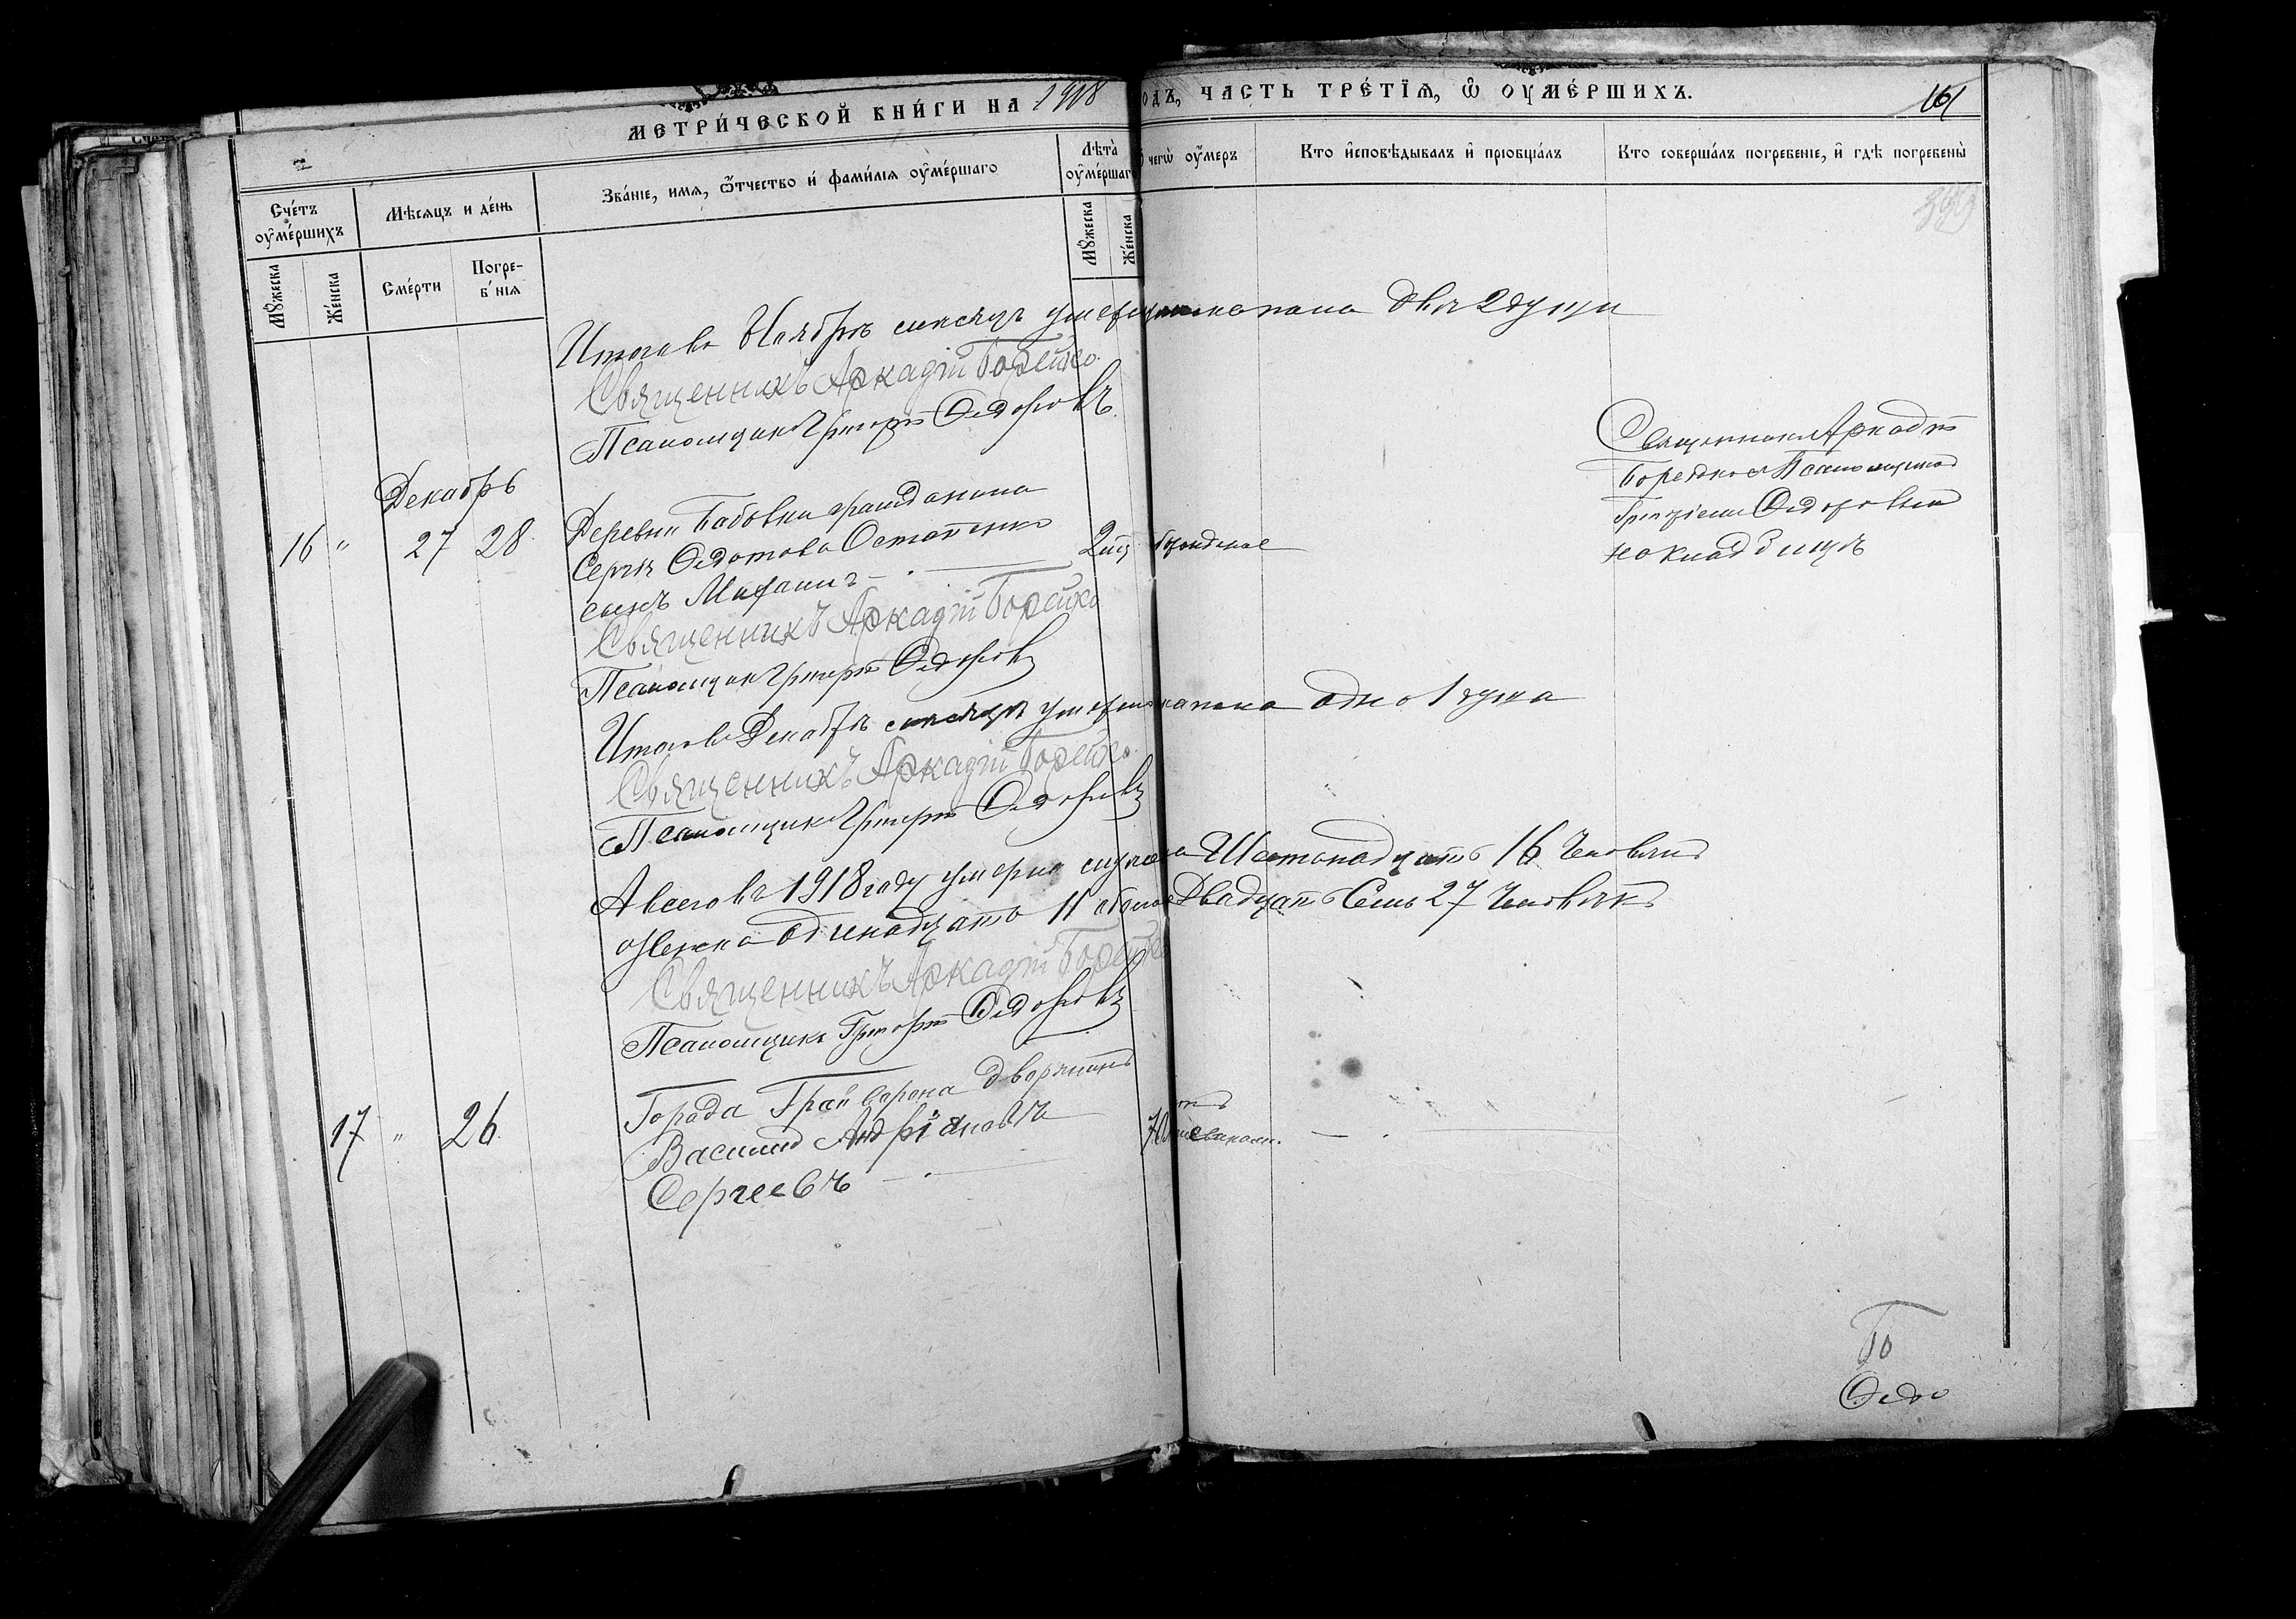 МЕТРИ́ЧЕСКОЙ КНИ́ГИ НА 1918
ОДЪ, ЧАСТЬ ТРЕ́ТЇѦ, Ѽ ОУМЕ́РШИХЪ.
161
Сче́тъ оумершихъ
Мѣсяцъ и де́нь
Зва́нїе, имѧ, ѿтчество и́ фами́лїѧ оуме́ршаго
Лѣта̀ оуме́ршаго
чегѡ̀ оу́меръ
Кто и҆сповѣ́дывалъ и҆ прїобща́лъ
Кто соверша́лъ погребе́нїе, и҆ гдѣ̀ погребены̀
Мꙋжеска
Же́нска
Сме́рти
Погребе́нїѧ
Мꙋжеска
Же́нска
Итого въ Ноябрѣ месяцѣ умерши мо пола двѣ 2 души
Священникъ Аркадій Борейко.
Псаломщикъ Григорій Федоровъ.
Декабрь
16 " 27 28
Деревни Бабовки гражданина
Сергѣя Федотова Остапенко
сынъ Михаилъ
2
Священникъ Аркадій
Борейко съ Псаломщикомъ
Григоріемъ Федоровымъ
на кладбищѣ
Священникъ Аркадій Борейко
Псаломщикъ Григорій Федоровъ
Итого въ Декабрѣ месяцѣ умерши пола одна 1 душа
Священникъ Аркадій Борейко.
Псаломщикъ Григорій Федоровъ
А всего въ 1918 году умерло мужска Шестонадцать 16 человѣкъ
женска Одинадцать 11 обоего Двадцать Семь 27 человѣкъ
Священникъ Аркадій Борейко
Псаломщикъ Григорій Федоровъ
17 " 26
Города Грайворона дворянинъ
Василій Андріановъ
Сергеевъ
70
Бо
Федо